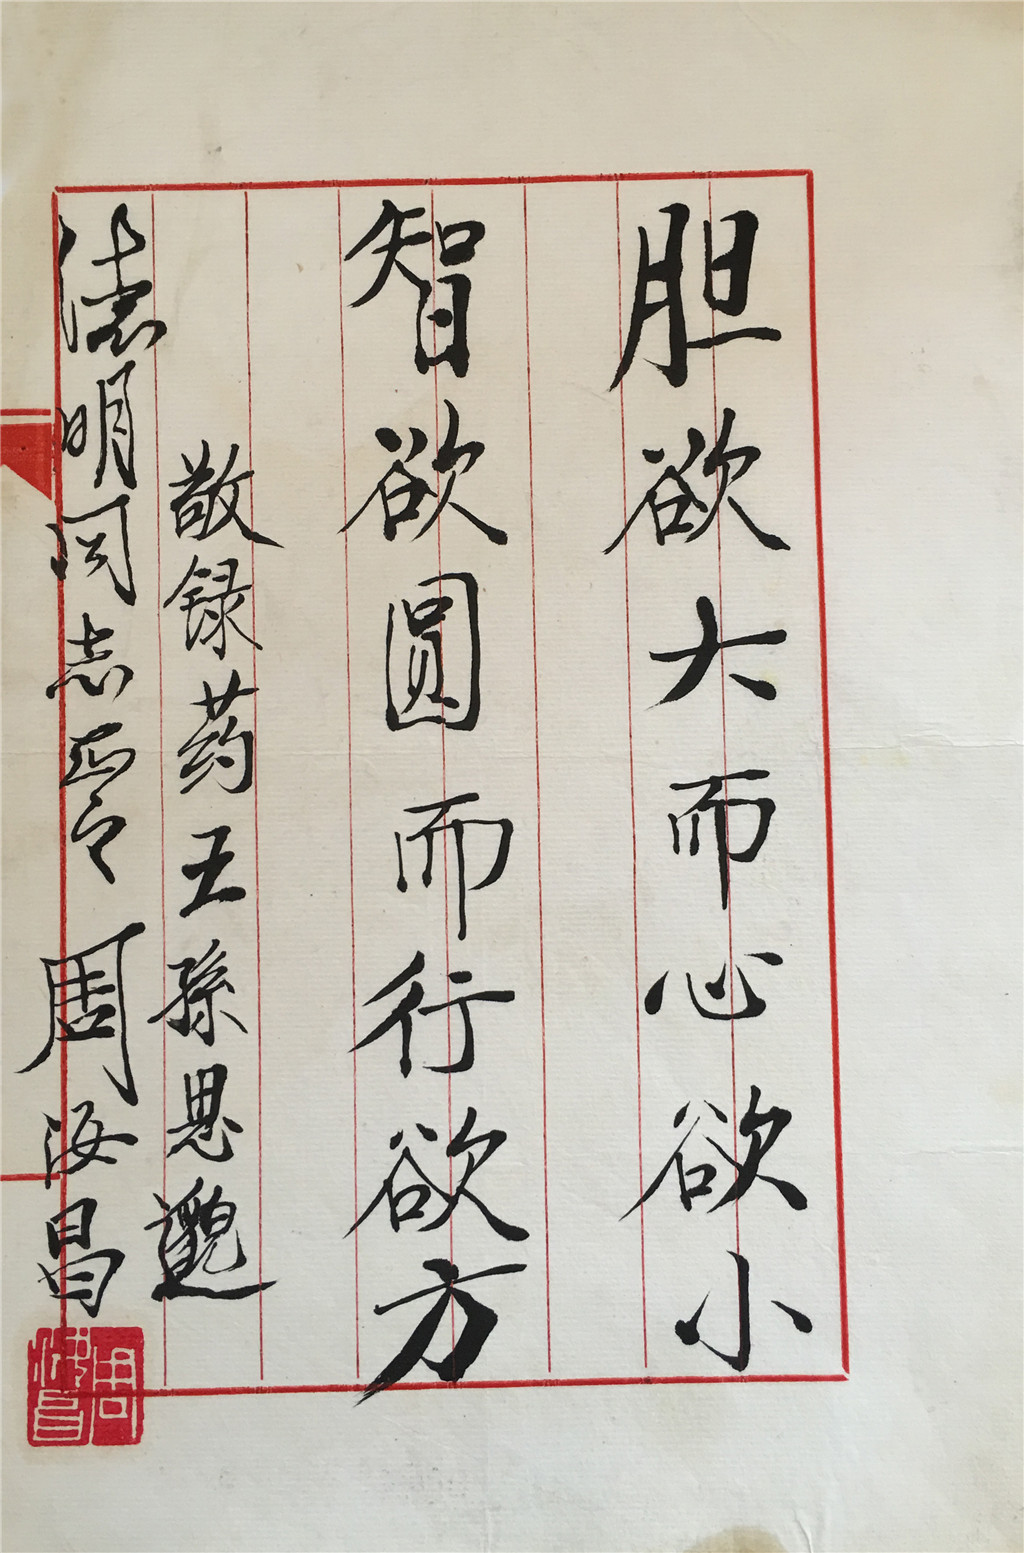 胆欲大而心欲小
智欲圆而行欲方
敬录药王孙思邈
德明同志正之 周海昌
周海昌